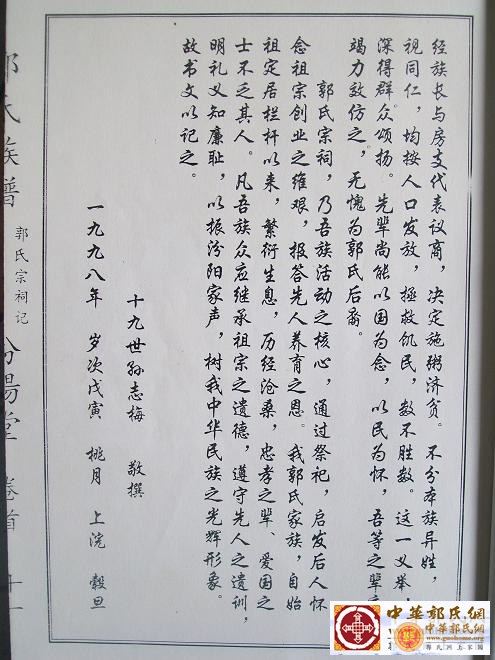 经族长与房支代表议商，决定施粥济贫。不分本族异姓，一
视同仁，均按人口发放，拯救饥民，数不胜数。这一义举，
深得群众颂扬。先辈尚能以国为念，以民为怀，吾等之辈
竭力效仿之，无愧为郭氏后裔。
郭氏宗祠，乃吾族活动之核心，通过祭祀，启发后人怀
念祖宗创业之维艰，报答先人养育之恩。我郭氏家族，自始
祖定居栏杆以来，繁衍生息，历经沧桑，忠孝之辈、爱国之
士不乏其人。凡吾族众应继承祖宗之遗德，遵守先人之遗训，
明礼义知廉耻，以振汾阳家声，树我中华民族之光辉形象。
故书文以记之。
十九世孙志梅 敬撰
一九九八年 岁次戊寅 桃月 上浣 穀旦
郭氏族谱 郭氏宗祠记 汾阳堂 卷首
中華郭氏網
中華郭氏網
www.guohome.org